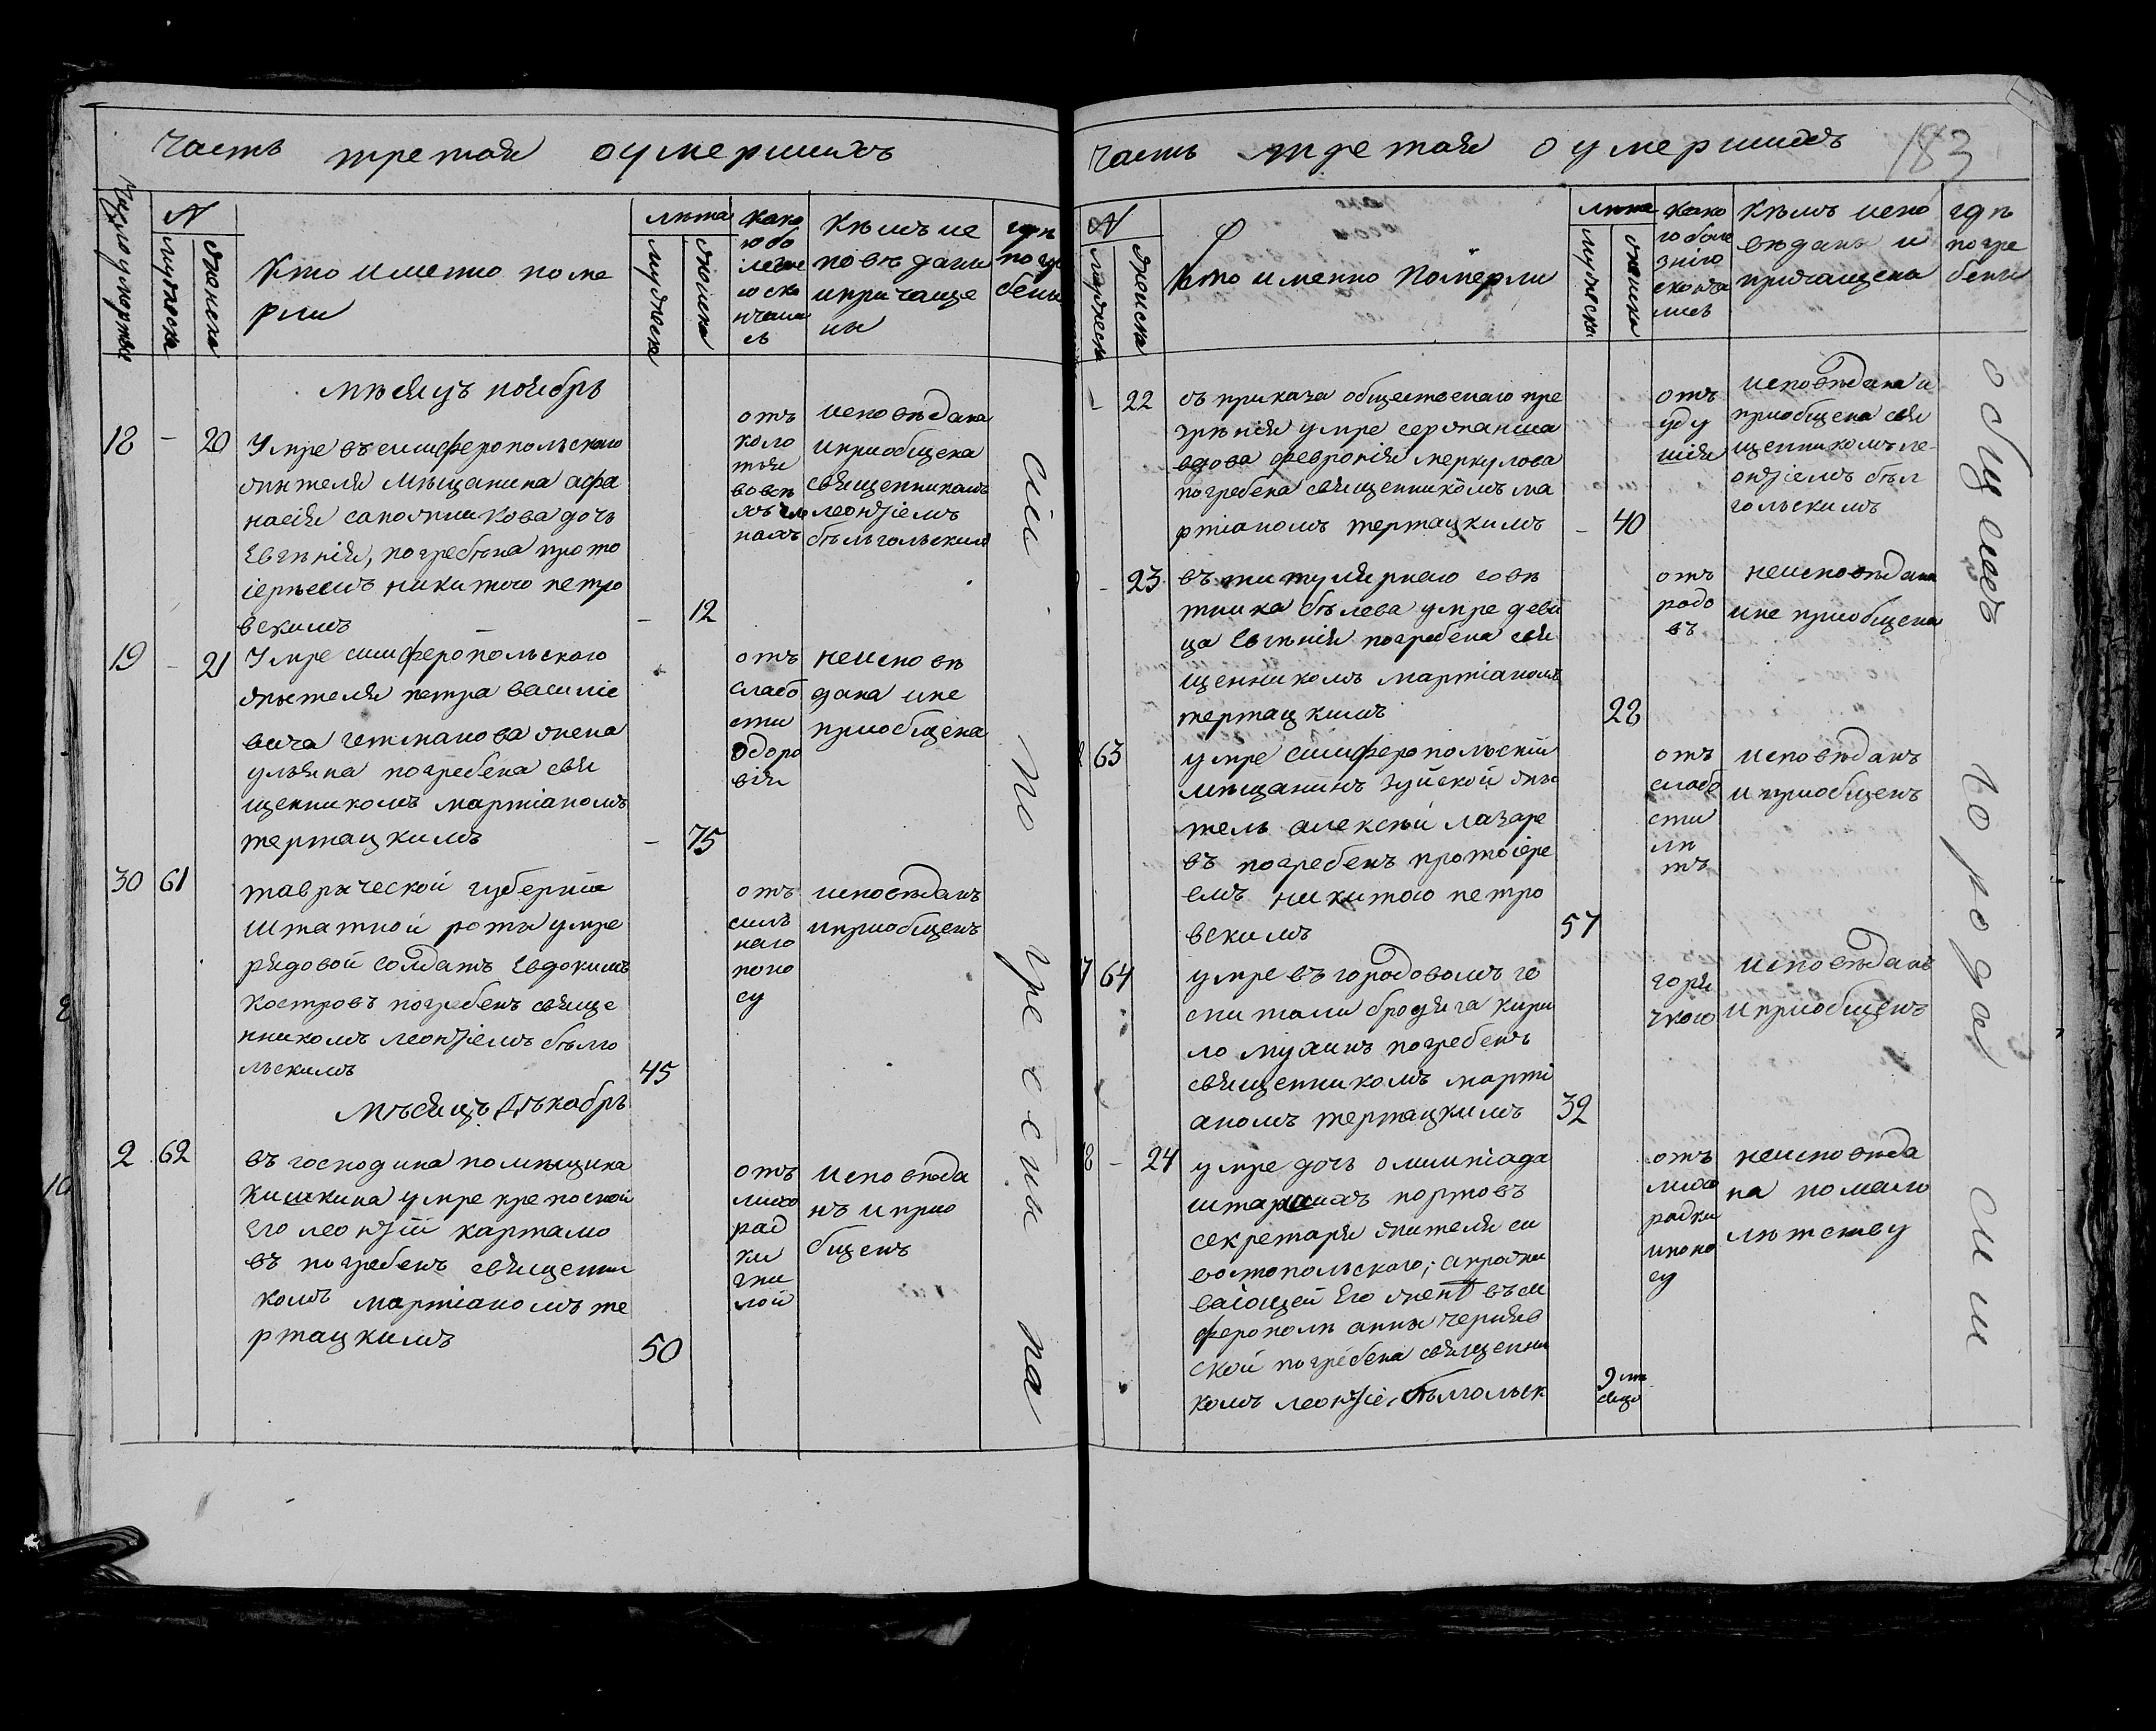 часть третая оумершихъ
Число умертвѣ
N
мужеска
женска
Кто имено поме
рли
лѣта
мужеска
женска
како
ю бо
лезне
ю ско
нчали
сь
Кѣмъ ис
повѣданы
и причаще
ны
гдѣ
погре
бены
мѣсяцъ ноябрь
18 – 20
Умре въ симферопольскаго
жытеля мѣщанина афа
насия сапожникова дочь
Евгѣния, погребена прото
іерѣемъ никитою петро
вскимъ
– 12
отъ
коло
тяя
во всѣ
хъ чле
нахъ
исповѣдана
и приобщена
священникомъ
леонтіемъ
бѣлгольскимъ
19 – 21
Умре симферопольскаго
жытеля петра василіе
вича гетманова жена
ульяна погребена свя
щенникомъ мартіаномъ
тертацкимъ
– 75
отъ
слабо
сти
здоро
вія
неиспов ѣ
дана и не
приобщена
30 61
таврической губернии
штатной роты умре
рядовой солдатъ Евдокимъ
костровъ погребенъ свяще
нникомъ леонтіемъ бѣлго
льскимъ
45
отъ
силь
наго
поно
су
исповѣданъ
и приобщенъ
Мѣсяцъ Дѣкабрь
2 62
въ господина помѣщика
кишкина умре крепосной
Его леонтій картамо
въ погребенъ священни
комъ мартіаномъ те
ртацкимъ
50
отъ
лихо
рад
ки
гни
лой
исповѣда
нъ и прио
бщенъ
сіи погребены на
часть третая оумершихъ
183
N
мужеска
женска
Кто именно померли
лѣта
мужеска
женска
како
ю боле
зніго
сконча
лись
Кѣмъ испо
вѣданы и
причащена
гдѣ
погре
бены
– 22
съ приказа общественаго пре
зрѣния умре сержанша
вдова феврония меркулова
погребена священникомъ ма
ртіаномъ тертацкимъ
– 40
отъ
уду
шия
исповѣдана и
приобщена свя
щенникомъ ле-
онтіемъ бѣл
гольскимъ
– 23
въ титулярнаго совѣ
тника бѣлева умре деви
ца Евгѣния погребена свя
щенникомъ мартіаномъ
тертацкимъ
28
отъ
родо
въ
неисповѣдана
и не приобщена
63
умре симферопольскій
мѣщанинъ зуйской жы
тель алексѣй лазаре
въ погребенъ протоіере
емъ никитою петро
вскимъ
57
отъ
слабо
сти
лѣ
тъ
исповѣданъ
и приобщенъ
7 64
умре въ городовомъ го
спитали бродяга кири
ло мухинъ погребенъ
священникомъ марті
аномъ тертацкимъ
32
горя
чкою
исповѣданъ
и приобщенъ
8 – 24
умре дочь олимпіада
секретаря жителя се
вастопольскаго; а прожи
вающей Его женѣ въ сим
ферополѣ анны черняв
ской погребена священни
комъ леонтіе. бѣлгольск
9 мѣ
сяцо
отъ
лихо
радки
и поно
су
неисповѣда
на по мало
лѣтству
общемъ городском